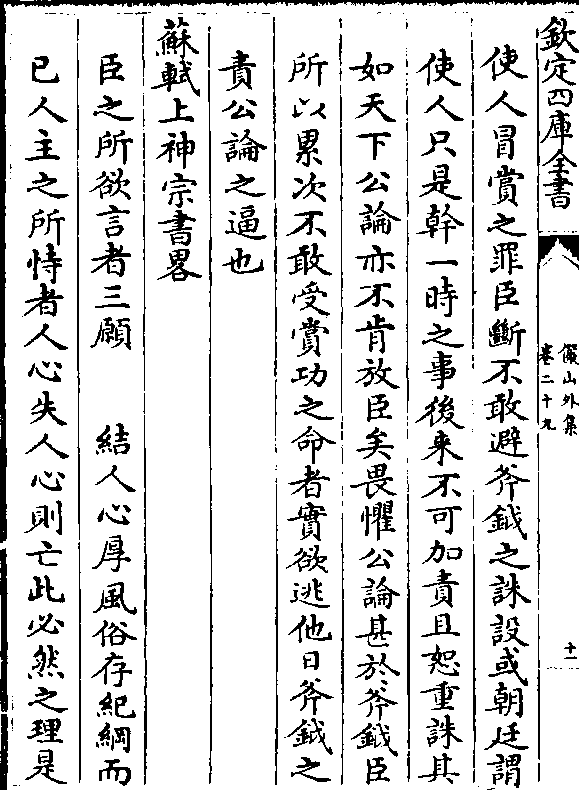 欽定四庫全書
儼山外集
卷二十九
十一
使人冒賞之罪臣斷不敢避斧鉞之誅設或朝廷謂
使人只是幹一時之事後来不可加責且恕重誅其
如天下公論亦不肯放臣矣畏懼公論甚於斧鉞臣
所以累次不敢受賞功之命者實欲逃他日斧鉞之
責公論之逼也
蘇軾上神宗書畧
臣之所欲言者三願 結人心厚風俗存紀綱而
已人主之所恃者人心失人心則亡此必然之理是